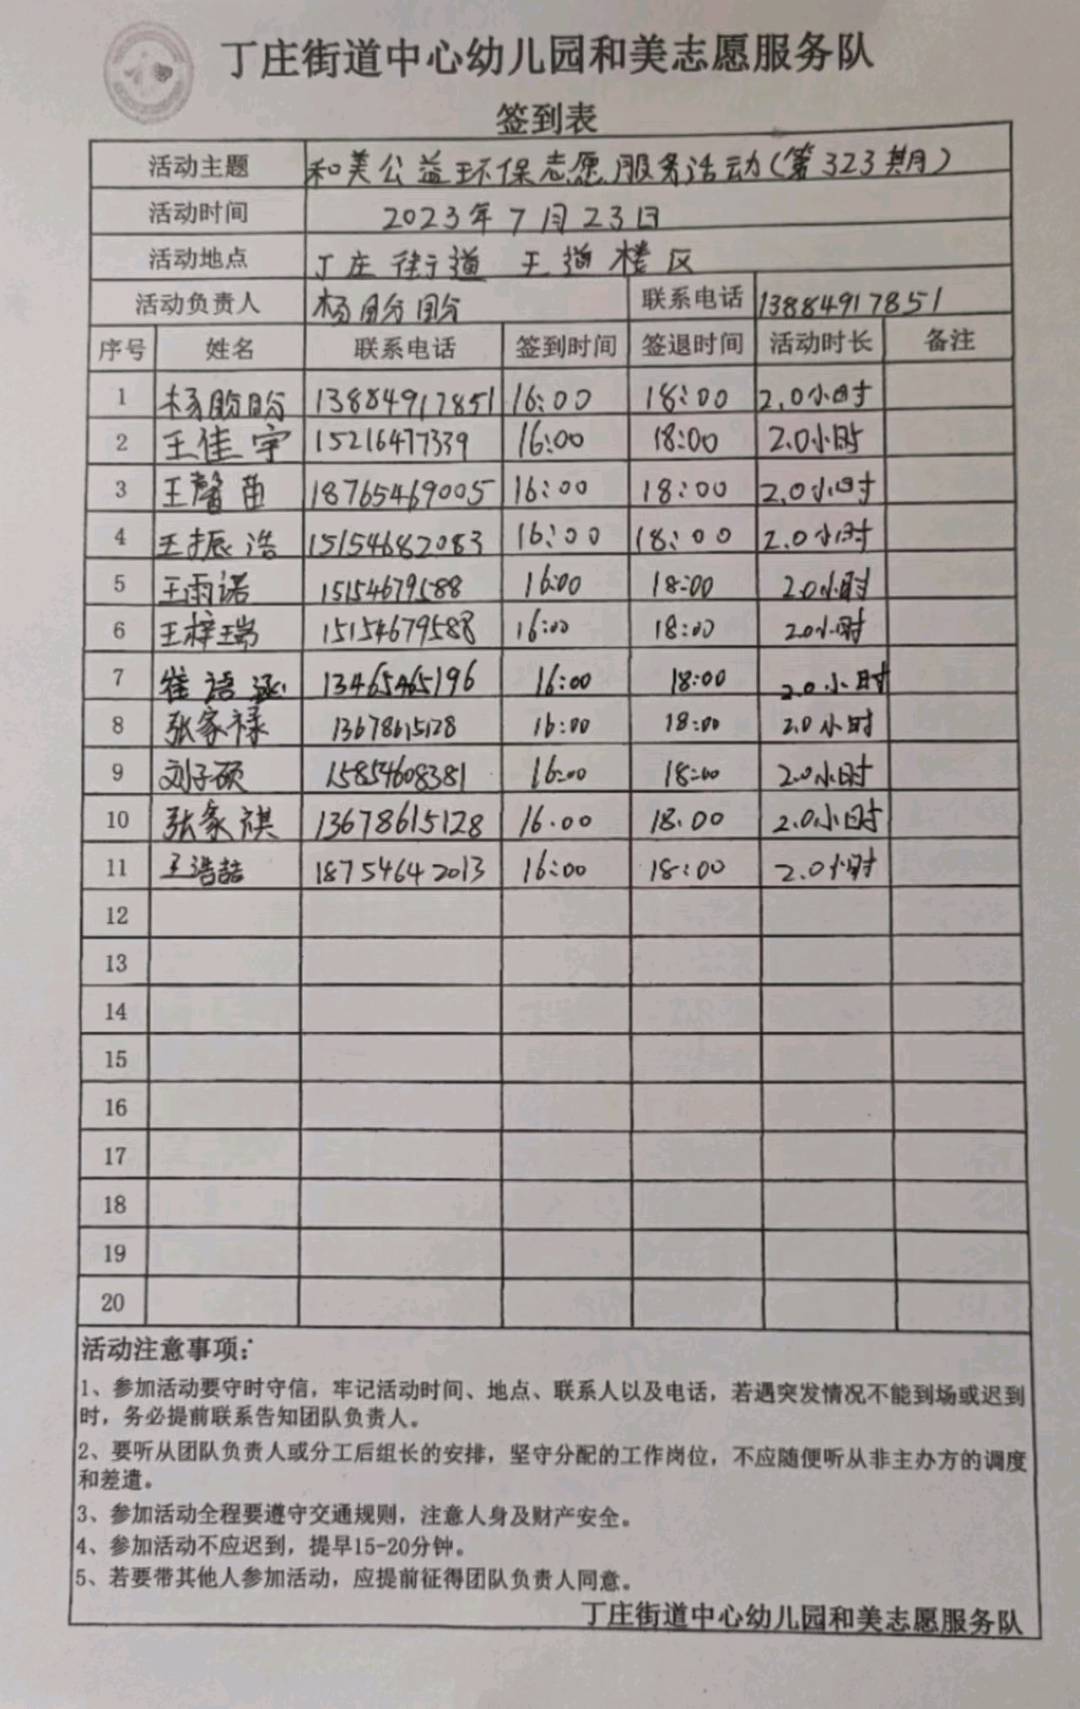 丁庄街道中心幼儿园和美志愿服务队
签到表
活动主题 和美公益环保志愿服务活动(第323期)
活动时间 2023年7月23日
活动地点 丁庄街道 王道楼区
活动负责人 杨盼盼 联系电话 13884917851
序号 姓名 联系电话 签到时间 签退时间 活动时长 备注
1 杨盼盼 13884917851 16:00 18:00 2.0小时
2 王佳宇 15216477339 16:00 18:00 2.0小时
3 王馨苗 18765469005 16:00 18:00 2.0小时
4 王振浩 15154682083 16:00 18:00 2.0小时
5 王雨诺 15154679588 16:00 18:00 2.0小时
6 王梓瑞 15154679588 16:00 18:00 2.0小时
7 崔语涵 13465465196 16:00 18:00 2.0小时
8 张家禄 13678615128 16:00 18:00 2.0小时
9 刘子硕 15854608381 16:00 18:00 2.0小时
10 张家祺 13678615128 16.00 18.00 2.0小时
11 王浩喆 18754642013 16:00 18:00 2.0小时
12
13
14
15
16
17
18
19
20
活动注意事项:
1、参加活动要守时守信，牢记活动时间、地点、联系人以及电话，若遇突发情况不能到场或迟到
时，务必提前联系告知团队负责人。
2、要听从团队负责人或分工后组长的安排，坚守分配的工作岗位，不应随便听从非主办方的调度
和差遣。
3、参加活动全程要遵守交通规则，注意人身及财产安全。
4、参加活动不应迟到，提早15-20分钟。
5、若要带其他人参加活动，应提前征得团队负责人同意。
丁庄街道中心幼儿园和美志愿服务队